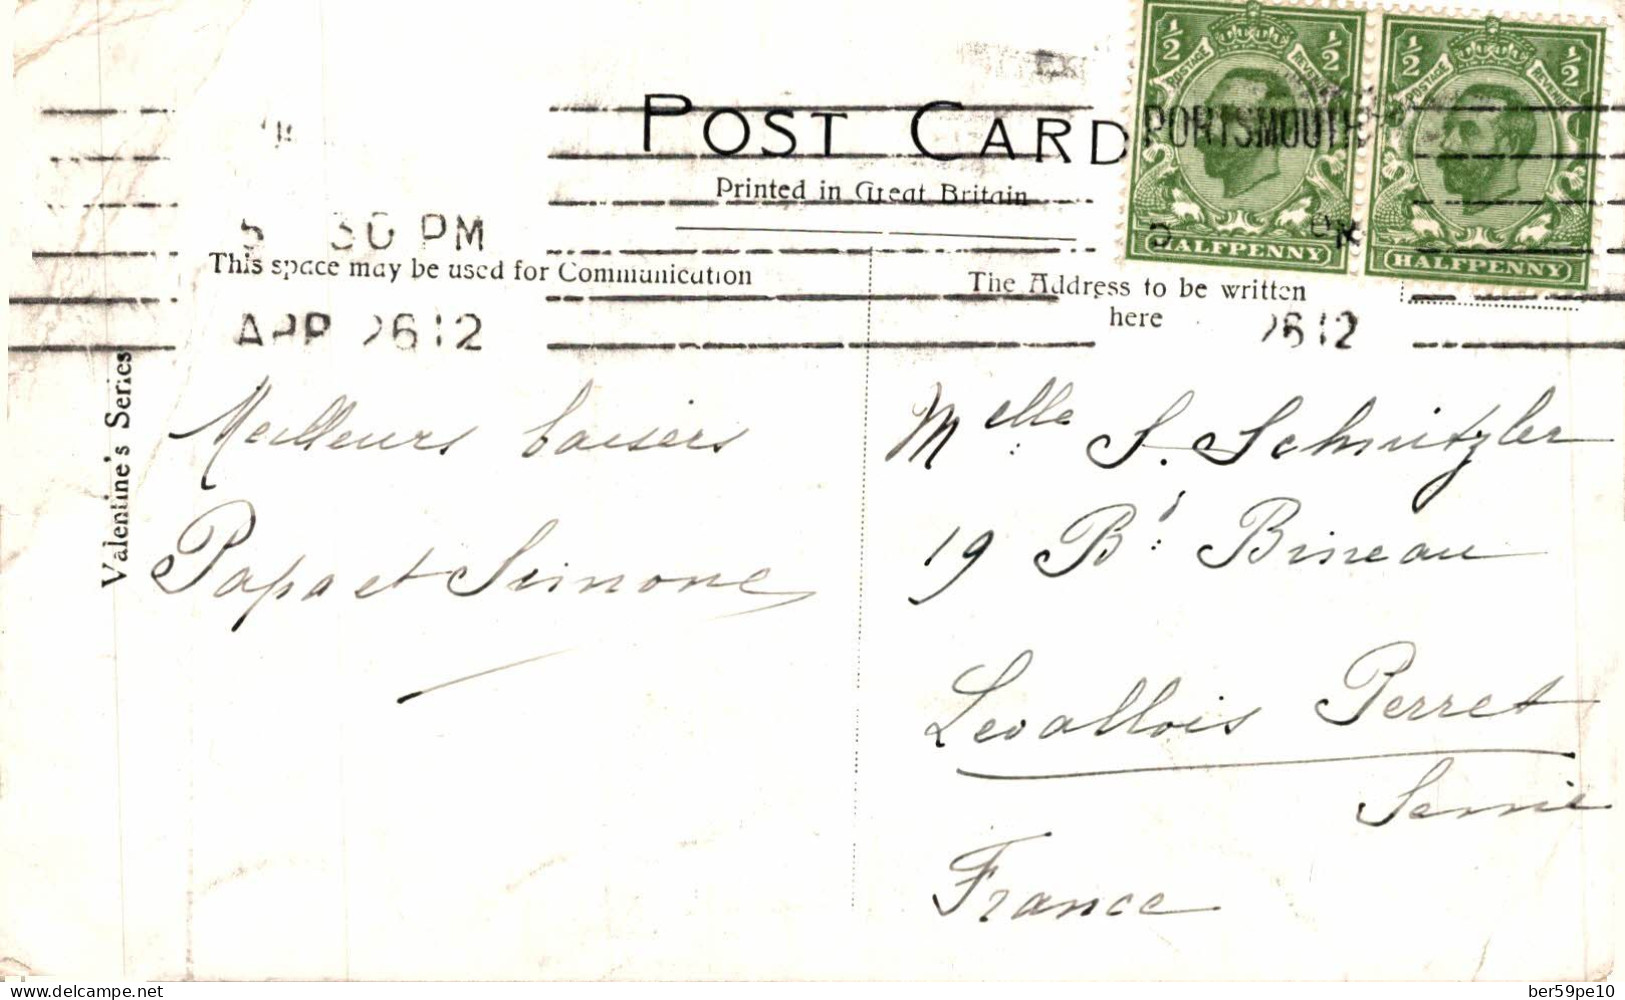 POST CARD
Printed in Great Britain
½ ½
POSTAGE REVENUE
HALFPENNY
½ ½
POSTAGE REVENUE
HALFPENNY
PORTSMOUTH
5 30 PM
APR 26 12
26 12
This space may be used for Communication
The Address to be written
here
Valentine's Series
Meilleurs baisers
Papa et Simone
Melle S. Schnitzler
19 Bd Bineau
Levallois Perret
Seine
France
www.delcampe.net
ber59pe10